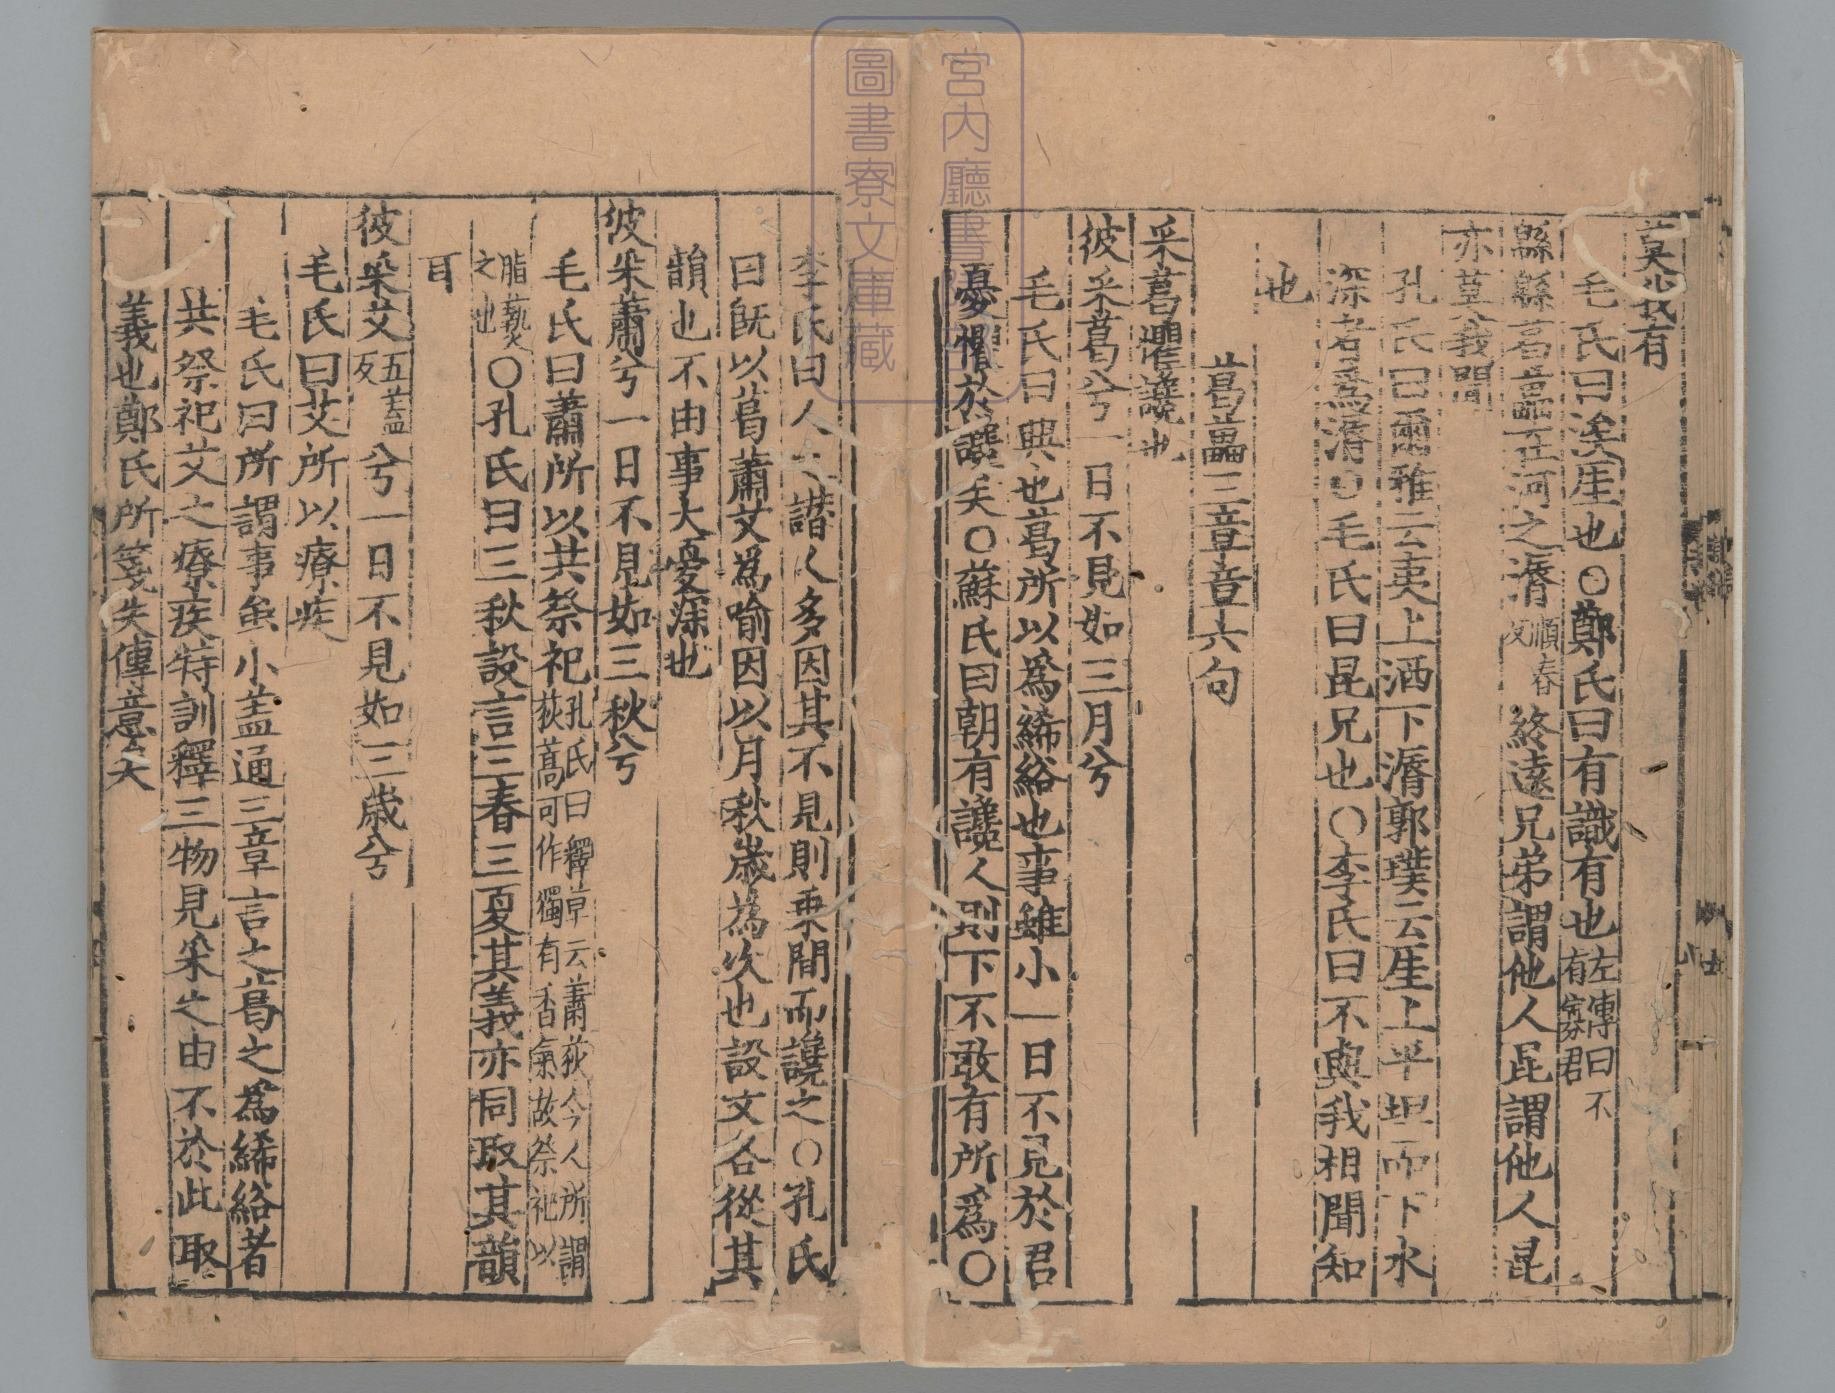 莫我有
毛氏曰涘厓也○鄭氏曰有識有也左傳曰不有寡君
緜緜葛藟在河之漘順春反終遠兄弟謂他人昆謂他人昆
亦莫我聞
孔氏曰爾雅云夷上洒下漘郭璞云厓上平坦而下水
深者爲漘○毛氏曰昆兄也○李氏曰不與我相聞知
也
葛藟三章章六句
采葛懼讒也
彼采葛兮一日不見如三月兮
毛氏曰興也葛所以爲絺綌也事雖小一日不見於君
憂懼於讒矣○蘇氏曰朝有讒人則下不敢有所爲○
李氏曰人之譖人多因其不見則乗間而讒之○孔氏
曰旣以葛蕭艾爲喻因以月秋歲爲次也設文各從其
韻也不由事大憂深也
彼采蕭兮一日不見如三秋兮
毛氏曰蕭所以共祭祀孔氏曰釋草云蕭荻今人所謂荻蒿可作燭有香氣故祭祀以
脂爇之也○孔氏曰三秋設言三春三夏其義亦同取其韻
耳
彼采艾五蓋反兮一日不見如三歲兮
毛氏曰艾所以療疾
毛氏曰所謂事虽小盖通三章言之葛之爲絺綌者
共祭祀艾之療疾特訓釋三物見采之由不於此取
義也鄭氏所箋失傳意矣大
宮内廳書陵部
圖書寮文庫藏